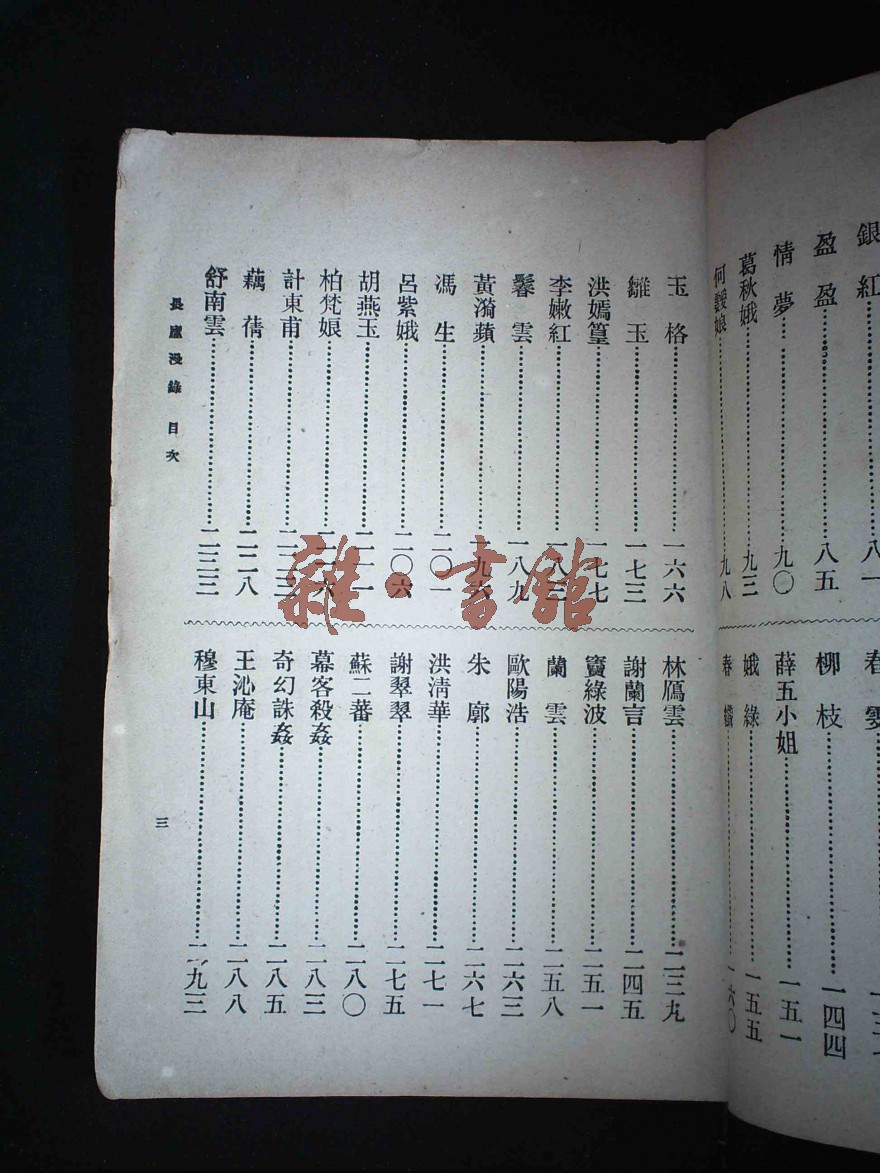 銀紅……八一
盈盈……八五
情夢……九〇
葛秋娥……九三
九八
柳枝……一四四
薛五小姐……一五一
娥綠……一五五
一六〇
玉格……一六六
雛玉……一七三
洪嫣篁……一七七
李嫩紅……一八三
馨雲……一八九
黃漪蘋……一九六
馮生……二〇一
呂紫娥……二〇六
胡燕玉……二一一
柏梵娘……二一六
計東甫……二二三
藕蒨……二二八
舒南雲……二三三
林鴈雲……二三九
謝蘭言……二四五
竇綠波……二五一
蘭雲……二五八
歐陽浩……二六三
朱廓……二六七
洪淸華……二七一
謝翠翠……二七五
蘇二蕃……二八〇
幕客殺姦……二八三
奇幻誅姦……二八五
王沁庵……二八八
穆東山……二九三
漫錄 目次
三
雜·書館